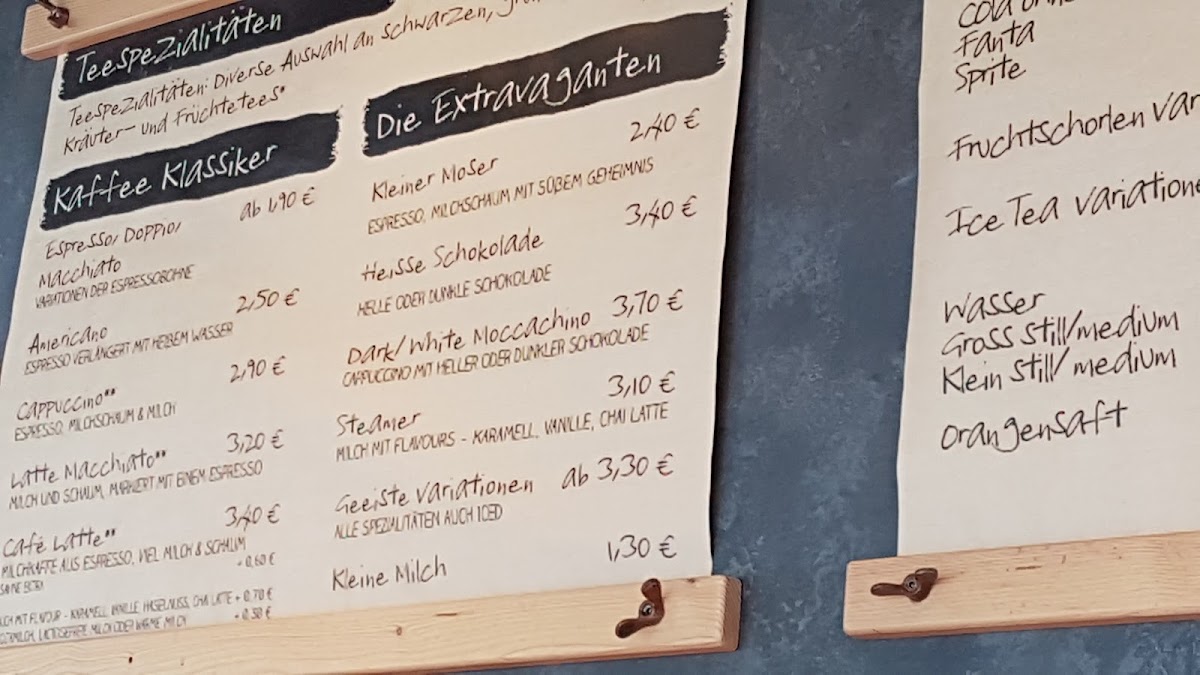 Teespezialitäten
Teespezialitäten: Diverse Auswahl an schwarzen,
Kräuter- und Früchtetees*
Kaffee Klassiker
Espresso/ Doppio/ ab 1,90 €
Macchiato
VARIATIONEN DER ESPRESSOBOHNE
Americano 2,50 €
ESPRESSO VERLÄNGERT MIT HEIßEM WASSER
Cappuccino** 2,90 €
ESPRESSO, MILCHSCHAUM & MILCH
Latte Macchiato** 3,20 €
MILCH UND SCHAUM, MARKIERT MIT EINEM ESPRESSO
Café Latte** 3,40 €
MILCHKAFFE AUS ESPRESSO, VIEL MILCH & SCHAUM
+ 0,60 €
MIT FLAVOUR - KARAMELL, VANILLE, HASELNUSS, CHAI LATTE + 0,70 €
LAKTOSEFREIE MILCH ODER WARME MILCH + 0,30 €
Die Extravaganten
Kleiner Moser 2,40 €
ESPRESSO, MILCHSCHAUM MIT SÜßEM GEHEIMNIS
Heisse Schokolade 3,40 €
HELLE ODER DUNKLE SCHOKOLADE
Dark/White Moccachino 3,70 €
CAPPUCCINO MIT HELLER ODER DUNKLER SCHOKOLADE
Steamer 3,10 €
MILCH MIT FLAVOURS - KARAMELL, VANILLE, CHAI LATTE
Geeiste Variationen ab 3,30 €
ALLE SPEZIALITÄTEN AUCH ICED
Kleine Milch 1,30 €
Fanta
Sprite
Fruchtschorlen
Ice Tea
Wasser
Gross still/medium
Klein still/medium
Orangensaft